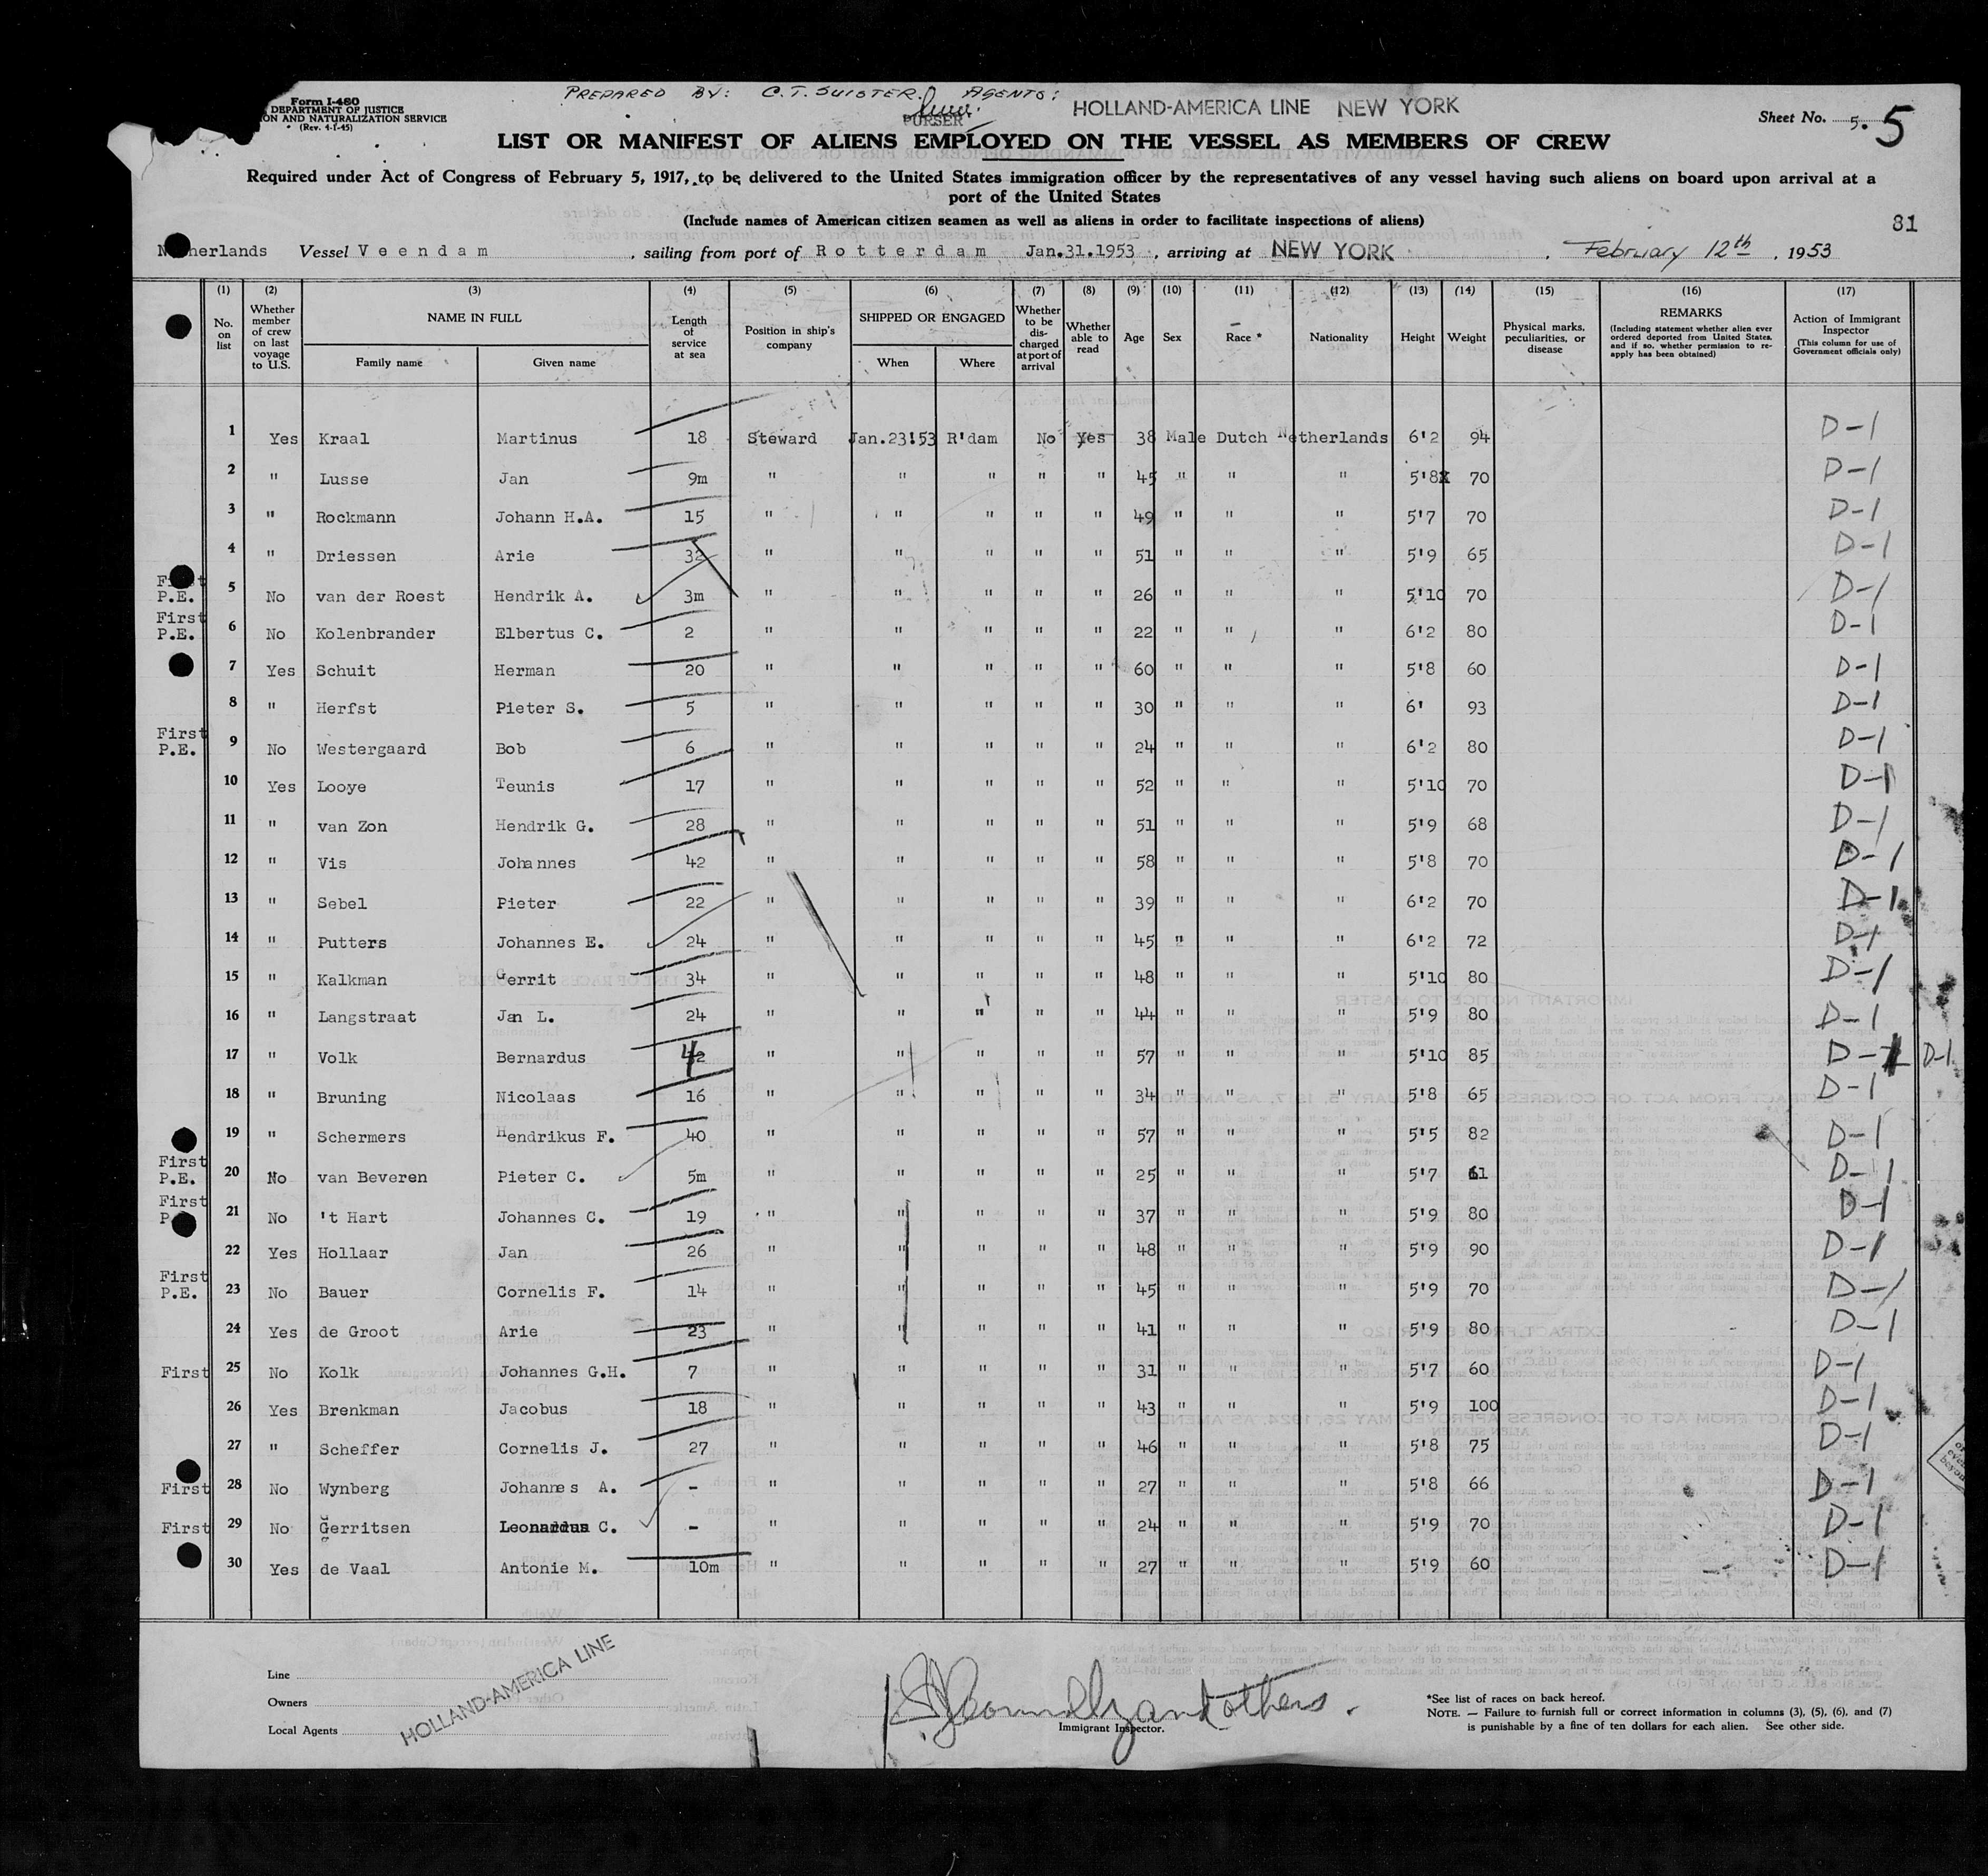 PREPARED BY: C.T. SUISTER. AGENTS: HOLLAND-AMERICA LINE NEW YORK
Form I-480
DEPARTMENT OF JUSTICE
ON AND NATURALIZATION SERVICE
(Rev. 4-1-45)
PURSER
Sheet No. 5. 5
LIST OR MANIFEST OF ALIENS EMPLOYED ON THE VESSEL AS MEMBERS OF CREW
Required under Act of Congress of February 5, 1917, to be delivered to the United States immigration officer by the representatives of any vessel having such aliens on board upon arrival at a
port of the United States
(Include names of American citizen seamen as well as aliens in order to facilitate inspections of aliens)
81
Netherlands Vessel Veendam, sailing from port of Rotterdam Jan.31.1953, arriving at NEW YORK, February 12th, 1953
(1) (2) (3) (4) (5) (6) (7) (8) (9) (10) (11) (12) (13) (14) (15) (16) (17)
No. on list
Whether member of crew on last voyage to U.S.
NAME IN FULL
Family name Given name
Length of service at sea
Position in ship's company
SHIPPED OR ENGAGED
When Where
Whether to be discharged at port of arrival
Whether able to read
Age Sex Race * Nationality Height Weight
Physical marks, peculiarities, or disease
REMARKS
(Including statement whether alien ever ordered deported from United States, and if so, whether permission to re-apply has been obtained)
Action of Immigrant Inspector
(This column for use of Government officials only)
1 Yes Kraal Martinus 18 Steward Jan.23!53 R'dam No Yes 38 Male Dutch Netherlands 6'2 94 D-1
2 " Lusse Jan 9m " " " " " 45 " " " 5'8 70 D-1
3 " Rockmann Johann H.A. 15 " " " " " 49 " " " 5'7 70 D-1
4 " Driessen Arie 32 " " " " " 51 " " " 5'9 65 D-1
First P.E. 5 No van der Roest Hendrik A. 3m " " " " " 26 " " " 5'10 70 D-1
First P.E. 6 No Kolenbrander Elbertus C. 2 " " " " " 22 " " " 6'2 80 D-1
7 Yes Schuit Herman 20 " " " " " 60 " " " 5'8 60 D-1
8 " Herfst Pieter S. 5 " " " " " 30 " " " 6' 93 D-1
First P.E. 9 No Westergaard Bob 6 " " " " " 24 " " " 6'2 80 D-1
10 Yes Looye Teunis 17 " " " " " 52 " " " 5'10 70 D-1
11 " van Zon Hendrik G. 28 " " " " " 51 " " " 5'9 68 D-1
12 " Vis Johannes 42 " " " " " 58 " " " 5'8 70 D-1
13 " Sebel Pieter 22 " " " " " 39 " " " 6'2 70 D-1
14 " Putters Johannes E. 24 " " " " " 45 " " " 6'2 72 D-1
15 " Kalkman Gerrit 34 " " " " " 48 " " " 5'10 80 D-1
16 " Langstraat Jan L. 24 " " " " " 44 " " " 5'9 80 D-1
17 " Volk Bernardus 42 " " " " " 57 " " " 5'10 85 D-1 D-1
18 " Bruning Nicolaas 16 " " " " " 34 " " " 5'8 65 D-1
19 " Schermers Hendrikus F. 40 " " " " " 57 " " " 5'5 82 D-1
First P.E. 20 No van Beveren Pieter C. 5m " " " " " 25 " " " 5'7 61 D-1
First P. 21 No 't Hart Johannes C. 19 " " " " " 37 " " " 5'9 80 D-1
22 Yes Hollaar Jan 26 " " " " " 48 " " " 5'9 90 D-1
First P.E. 23 No Bauer Cornelis F. 14 " " " " " 45 " " " 5'9 70 D-1
24 Yes de Groot Arie 23 " " " " " 41 " " " 5'9 80 D-1
First 25 No Kolk Johannes G.H. 7 " " " " " 31 " " " 5'7 60 D-1
26 Yes Brenkman Jacobus 18 " " " " " 43 " " " 5'9 100 D-1
27 " Scheffer Cornelis J. 27 " " " " " 46 " " " 5'8 75 D-1
First 28 No Wynberg Johannes A. - " " " " " 27 " " " 5'8 66 D-1
First 29 No Gerritsen Leonardus C. - " " " " " 24 " " " 5'9 70 D-1
30 Yes de Vaal Antonie M. 10m " " " " " 27 " " " 5'9 60 D-1
Line
Owners
Local Agents
HOLLAND-AMERICA LINE
Immigrant Inspector.
*See list of races on back hereof.
NOTE. — Failure to furnish full or correct information in columns (3), (5), (6), and (7)
is punishable by a fine of ten dollars for each alien. See other side.